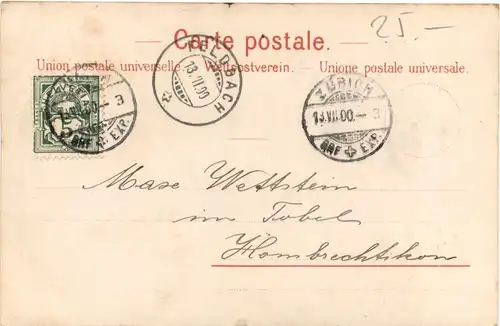 25.-
Carte postale.
Union postale universelle. — Weltpostverein. — Unione postale universale.
FELDBACH
13.VII.00
ZÜRICH
13.VII.00.— 3
BRF. EXP.
00.— 3
BRF. EXP.
Wettstein
im Tobel
Hombrechtikon